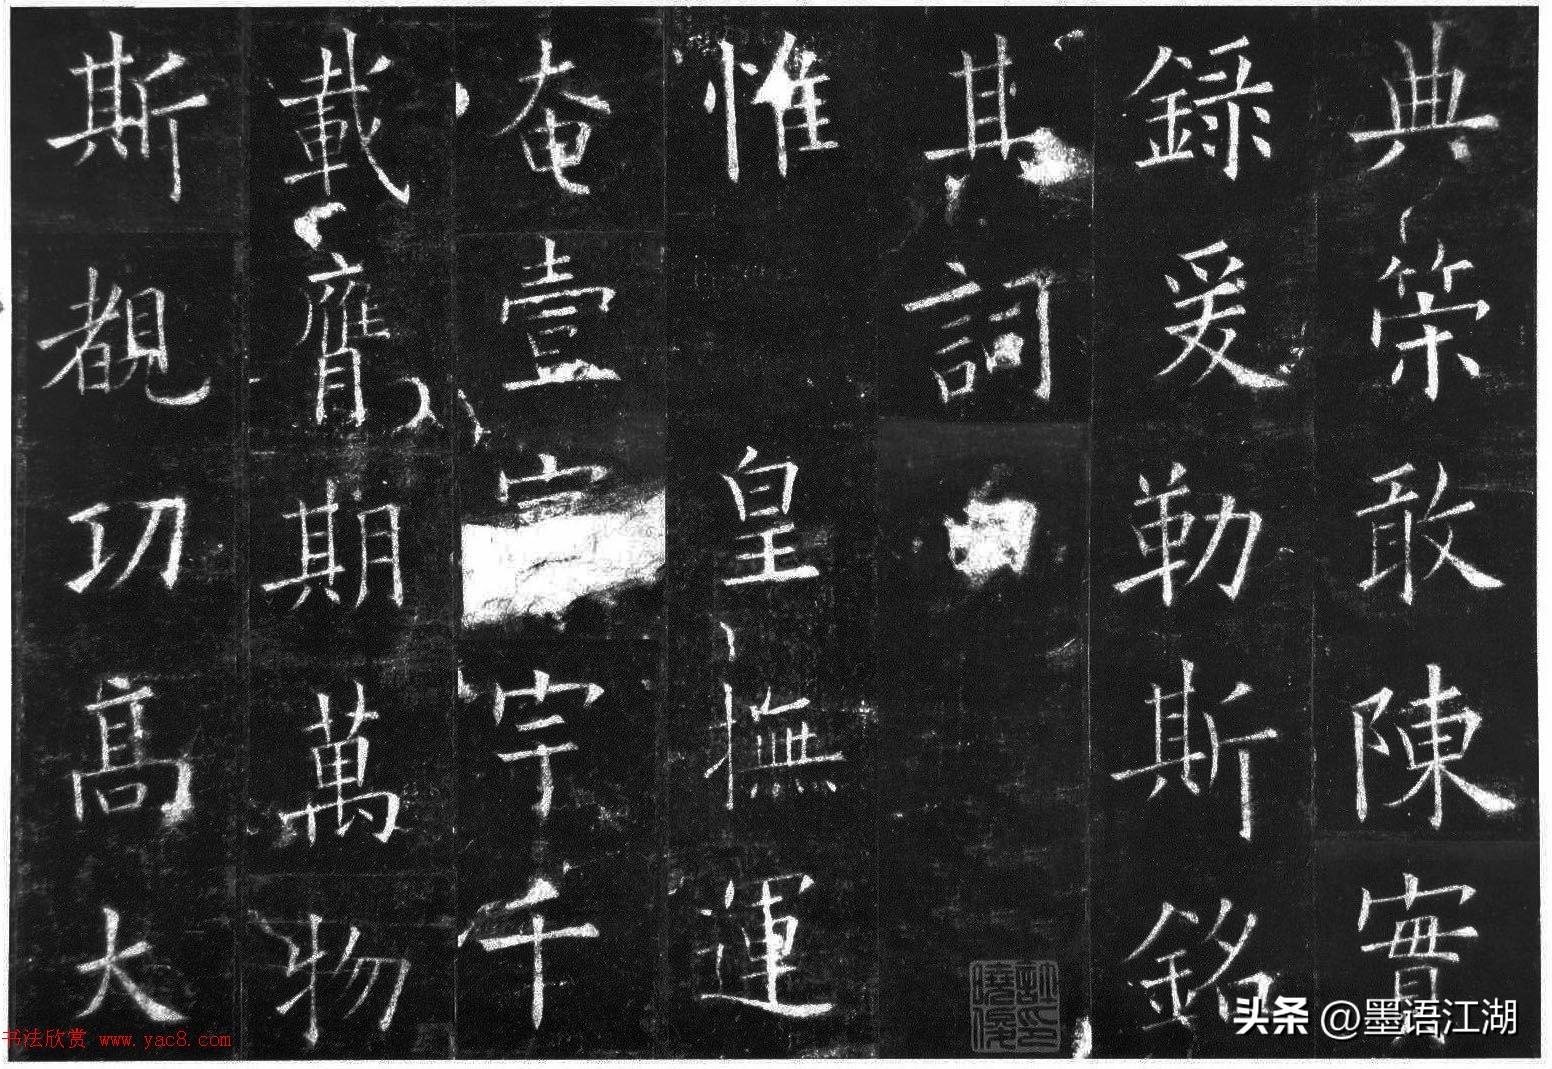 典策敢陳實
錄爰勒斯銘
其詞
惟皇撫運
奄壹宇千
載膺期萬物
斯覩功高大
头条 @墨语江湖
书法欣赏 www.yac8.com